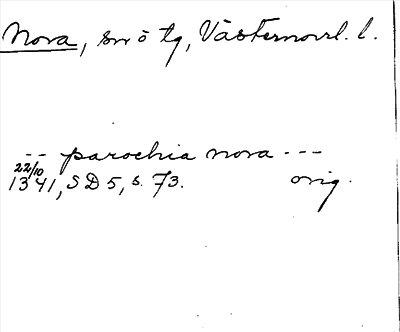 Nora, sn o tg, Västernorrl. l.
-- parochia nora ---
22/10
1341, SD 5, s. 73. orig.